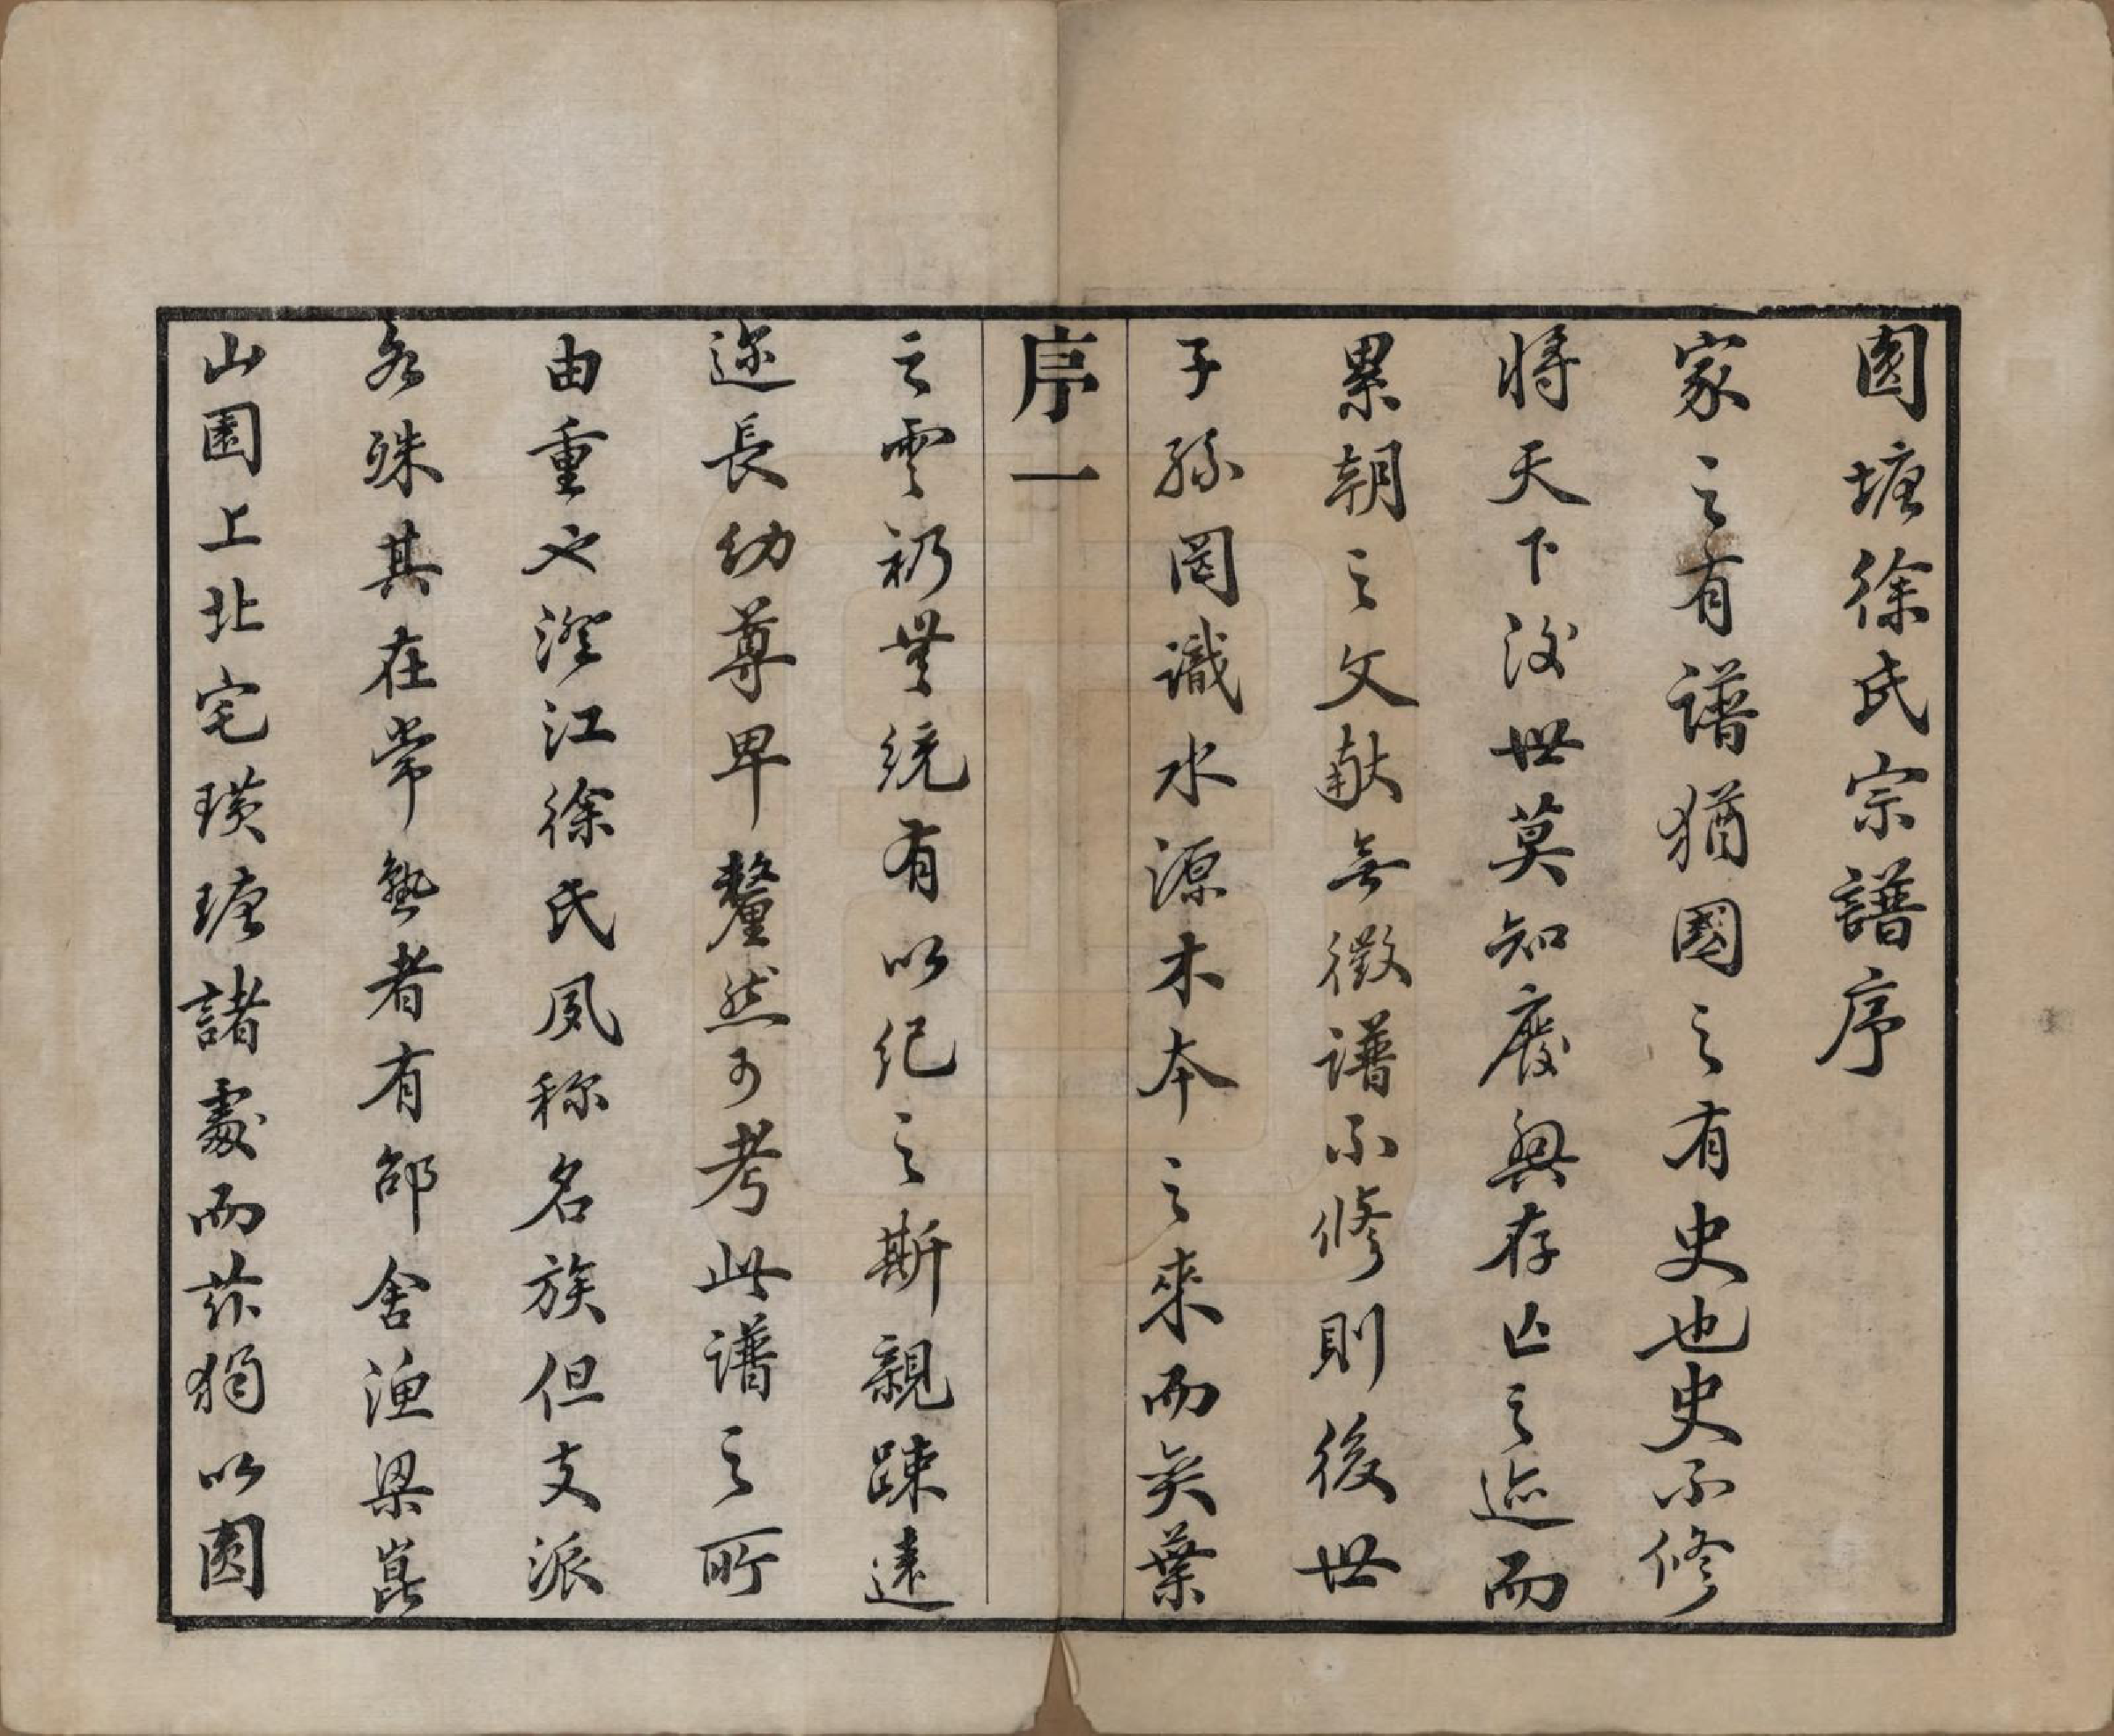 圓塘徐氏宗譜序
家之有譜猶國之有史也史不修
將天下後世莫知廢興存亡之迹而
累朝之文献無徵譜不修則後世
子孫罔識水源木本之來而奕葉
序一
之雲礽無統有以紀之斯親踈遠
迩長幼尊卑釐然可考此譜之所
由重也澄江徐氏夙称名族但支派
各殊其在常熟者有邵舍漁梁崑
山園上北宅璜塘諸處而茲獨以圓